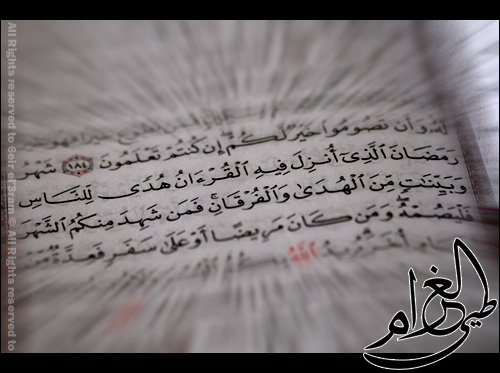 لَّهُۥ وَأَن تَصُومُوا۟ خَيْرٌ لَّكُمْ إِن كُنتُمْ تَعْلَمُونَ ١٨٤ شَهْرُ
رَمَضَانَ ٱلَّذِىٓ أُنزِلَ فِيهِ ٱلْقُرْءَانُ هُدًى لِّلنَّاسِ
وَبَيِّنَٰتٍ مِّنَ ٱلْهُدَىٰ وَٱلْفُرْقَانِ فَمَن شَهِدَ مِنكُمُ ٱلشَّهْرَ
فَلْيَصُمْهُ وَمَن كَانَ مَرِيضًا أَوْ عَلَىٰ سَفَرٍ فَعِدَّةٌ مِّنْ
أُخَرَ يُرِيدُ ٱللَّهُ
طير الغرام
All Rights reserved to 6eir el3ram © All Rights reserved to